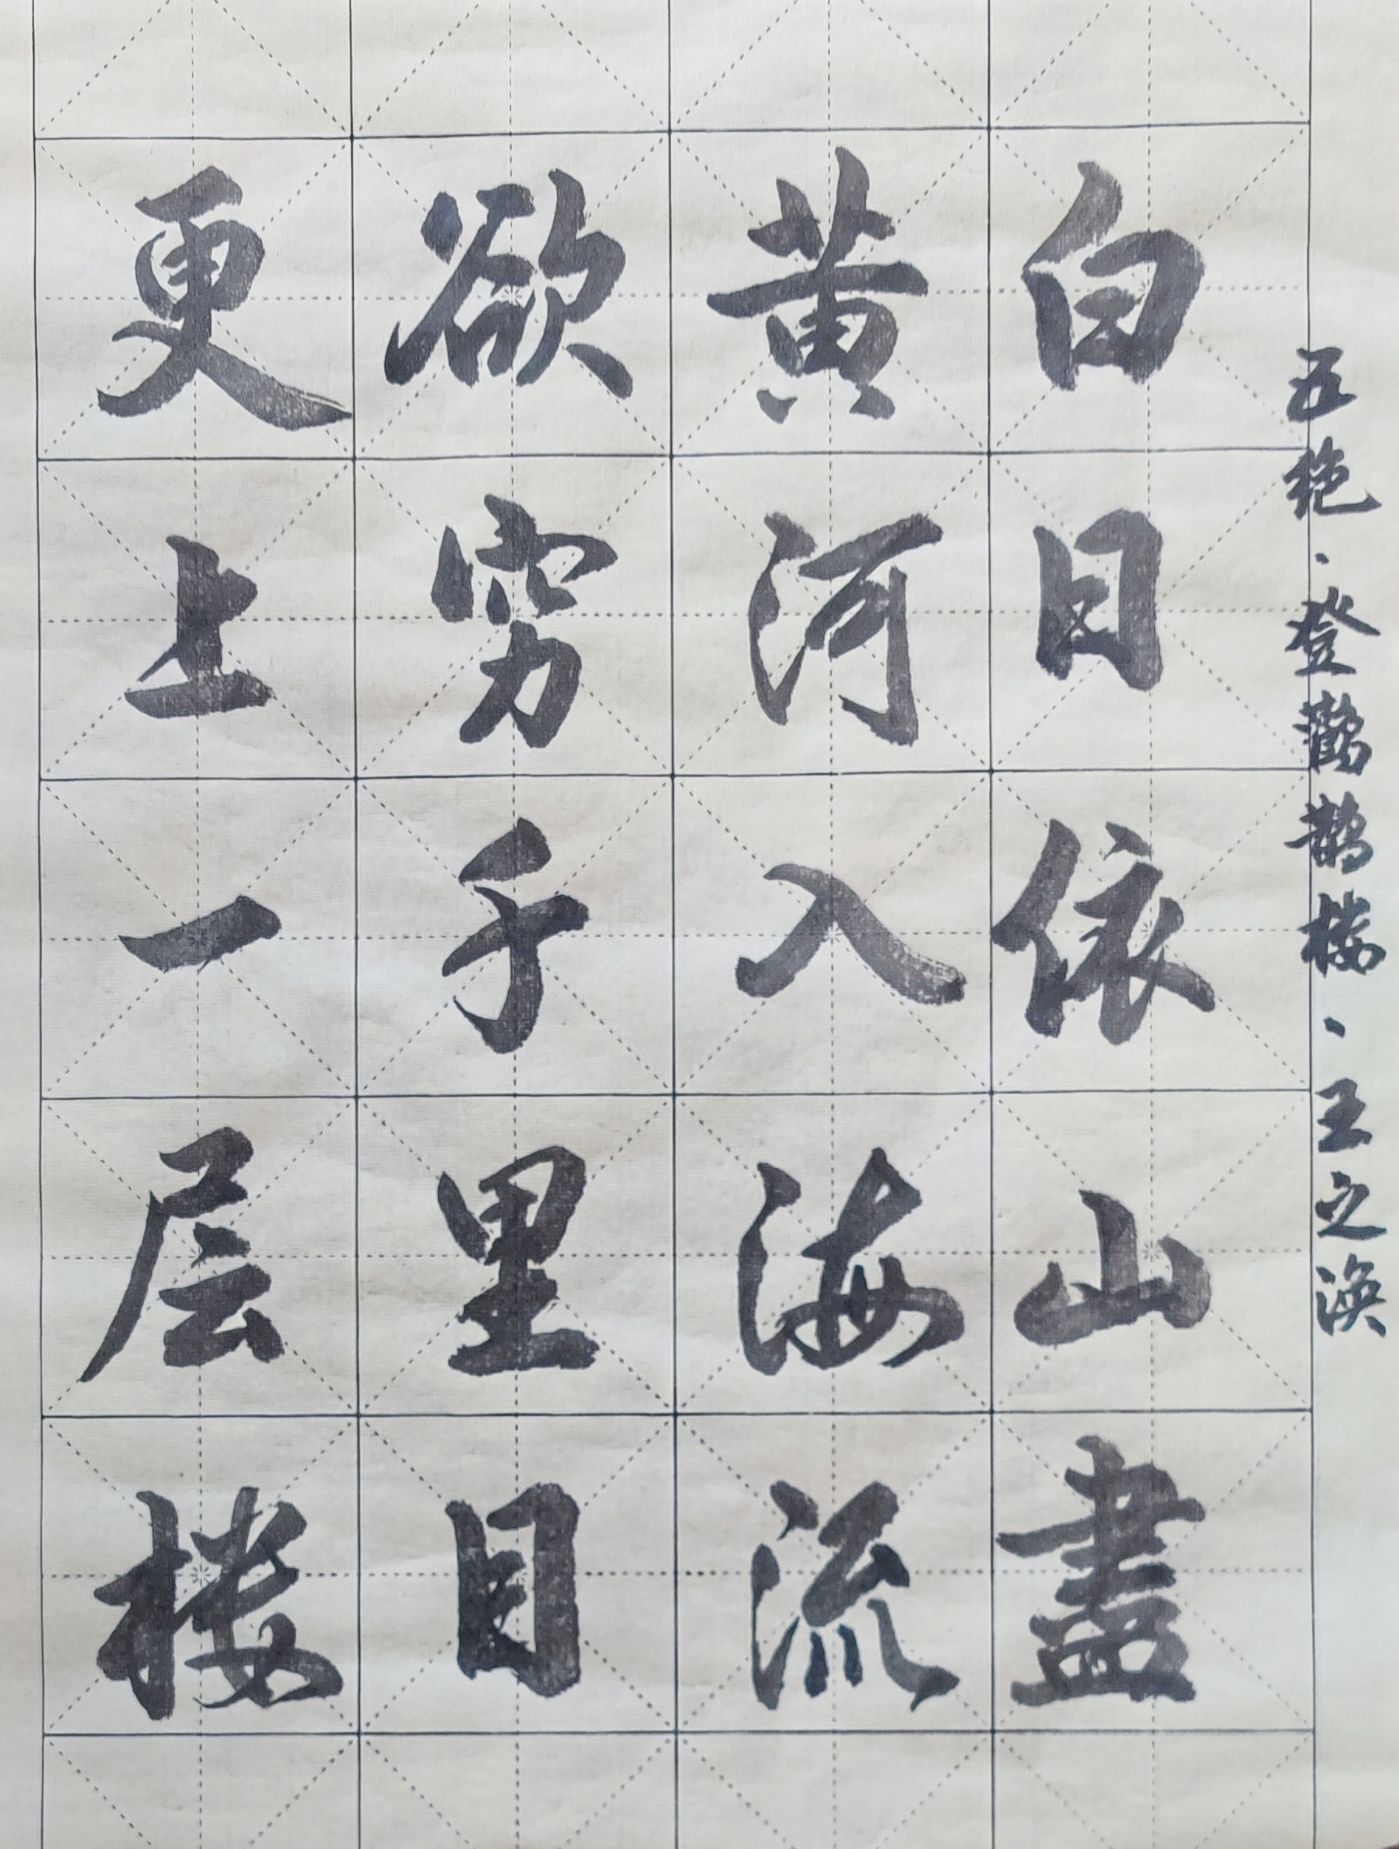 五绝·登鹳鹊楼、王之涣
白日依山盡
黄河入海流
欲穷千里目
更上一层楼